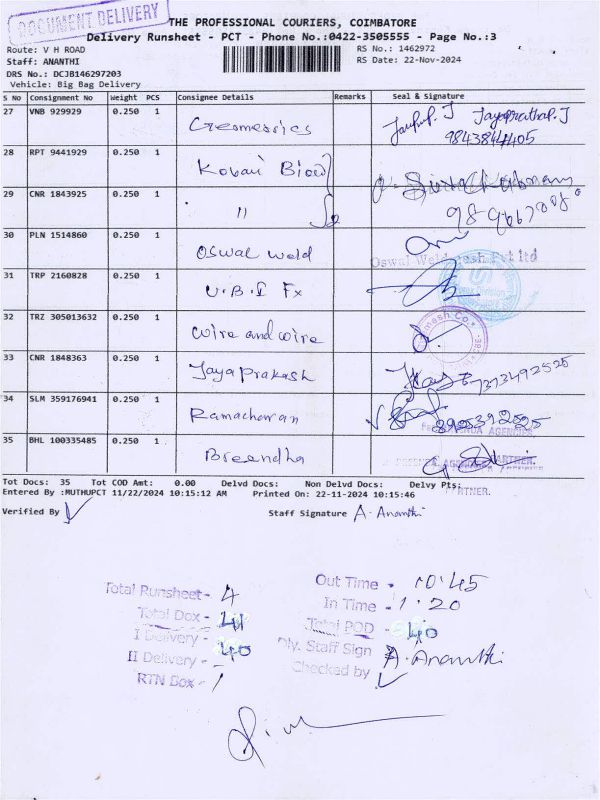 DOCUMENT DELIVERY
THE PROFESSIONAL COURIERS, COIMBATORE
Delivery Runsheet - PCT - Phone No.:0422-3505555 - Page No.:3
Route: V H ROAD
RS No.: 1462972
Staff: ANANTHI
RS Date: 22-Nov-2024
DRS No.: DCJB146297203
Vehicle: Big Bag Delivery
S No Consignment No Weight PCS Consignee Details Remarks Seal & Signature
27 VNB 929929 0.250 1
9843844405
28 RPT 9441929 0.250 1 Kovai
29 CNR 1843925 0.250 1 "
30 PLN 1514860 0.250 1 Oswal weld
Oswal Pvt ltd
31 TRP 2160828 0.250 1 U.B.I Fx
32 TRZ 305013632 0.250 1 wire and wire
33 CNR 1848363 0.250 1 Jayaprakash 7373492525
34 SLM 359176941 0.250 1
35 BHL 100335485 0.250 1
PARTNER.
Tot Docs: 35 Tot COD Amt: 0.00 Delvd Docs: Non Delvd Docs: Delvy Pts:
Entered By :MUTHUPCT 11/22/2024 10:15:12 AM Printed On: 22-11-2024 10:15:46
Verified By Staff Signature A. Ananthi
Total Runsheet - 4
Out Time - 10.45
In Time - 1.20
Total Dox - 41
Total POD - 40
I Delivery -
II Delivery - 40
Dly. Staff Sign A. Ananthi
Checked by
RTN Dox - 1